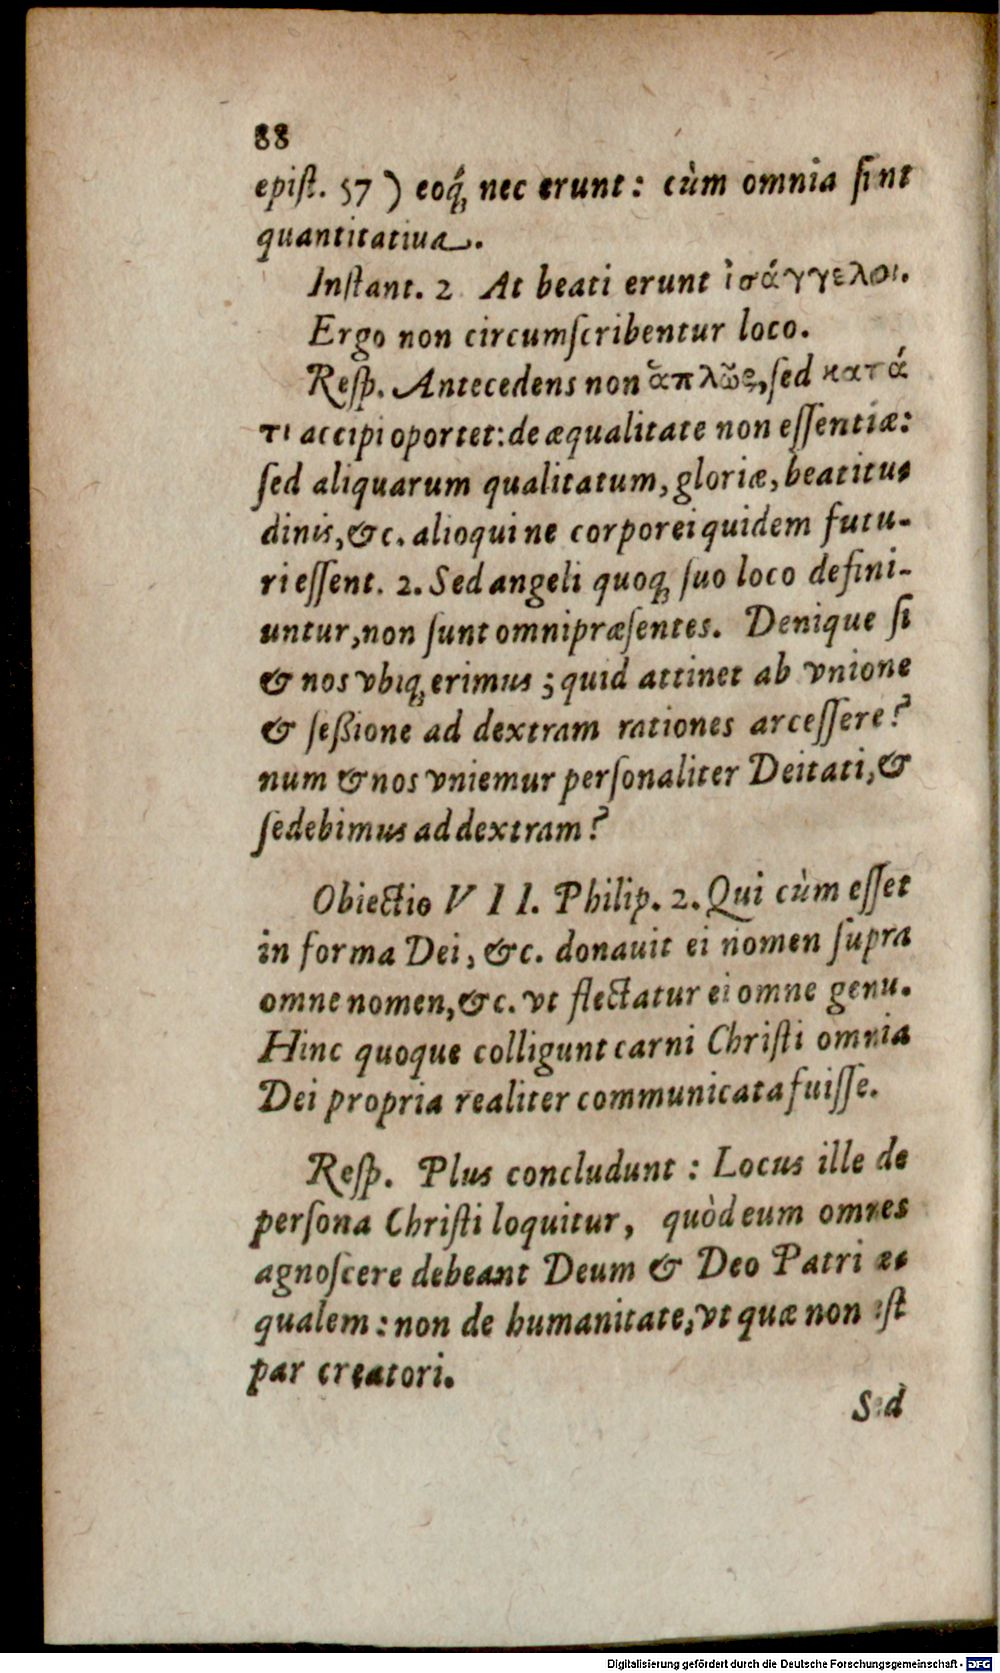 88
epiſt. 57) eoq́ꝫ nec erunt: cùm omnia ſint
quantitatiua.
Inſtant. 2 At beati erunt ἰσάγγελοι.
Ergo non circumſcribentur loco.
Reſp. Antecedens non ἁπλῶς, ſed κατά
τι accipi oportet: de æqualitate non eſſentiæ:
ſed aliquarum qualitatum, gloriæ, beatitu-
dinis, &c. alioqui ne corporei quidem futu-
ri eſſent. 2. Sed angeli quoqꝫ ſuo loco defini-
untur, non ſunt omnipræſentes. Denique ſi
& nos vbiqꝫ erimus; quid attinet ab vnione
& ſeßione ad dextram rationes arceſſere?
num & nos vniemur perſonaliter Deitati, &
ſedebimus ad dextram?
Obiectio VII. Philip. 2. Qui cùm eſſet
in forma Dei, &c. donauit ei nomen ſupra
omne nomen, &c. vt flectatur ei omne genu.
Hinc quoque colligunt carni Chriſti omnia
Dei propria realiter communicata fuiſſe.
Reſp. Plus concludunt: Locus ille de
perſona Chriſti loquitur, quòd eum omnes
agnoſcere debeant Deum & Deo Patri æ-
qualem: non de humanitate, vt quæ non eſt
par creatori.
Sed
Digitalisierung gefördert durch die Deutsche Forschungsgemeinschaft - DFG